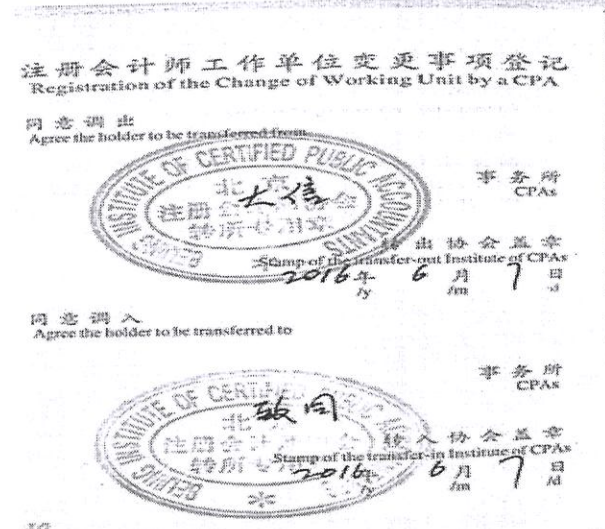 注册会计师工作单位变更事项登记
Registration of the Change of Working Unit by a CPA
同意调出
Agree the holder to be transferred from
INSTITUTE OF CERTIFIED PUBLIC ACCOUNTANTS
北京
注册会计师协会
转所专用章
大信
事务所
CPAs
转出协会盖章
Stamp of the transfer-out Institute of CPAs
2016年 6月 7日
/y /m /d
同意调入
Agree the holder to be transferred to
事务所
CPAs
BEIJING INSTITUTE OF CERTIFIED PUBLIC
北京
注册会计师协会
转所专用章
致同
转入协会盖章
Stamp of the transfer-in Institute of CPAs
2016年 6月 7日
/y /m /d